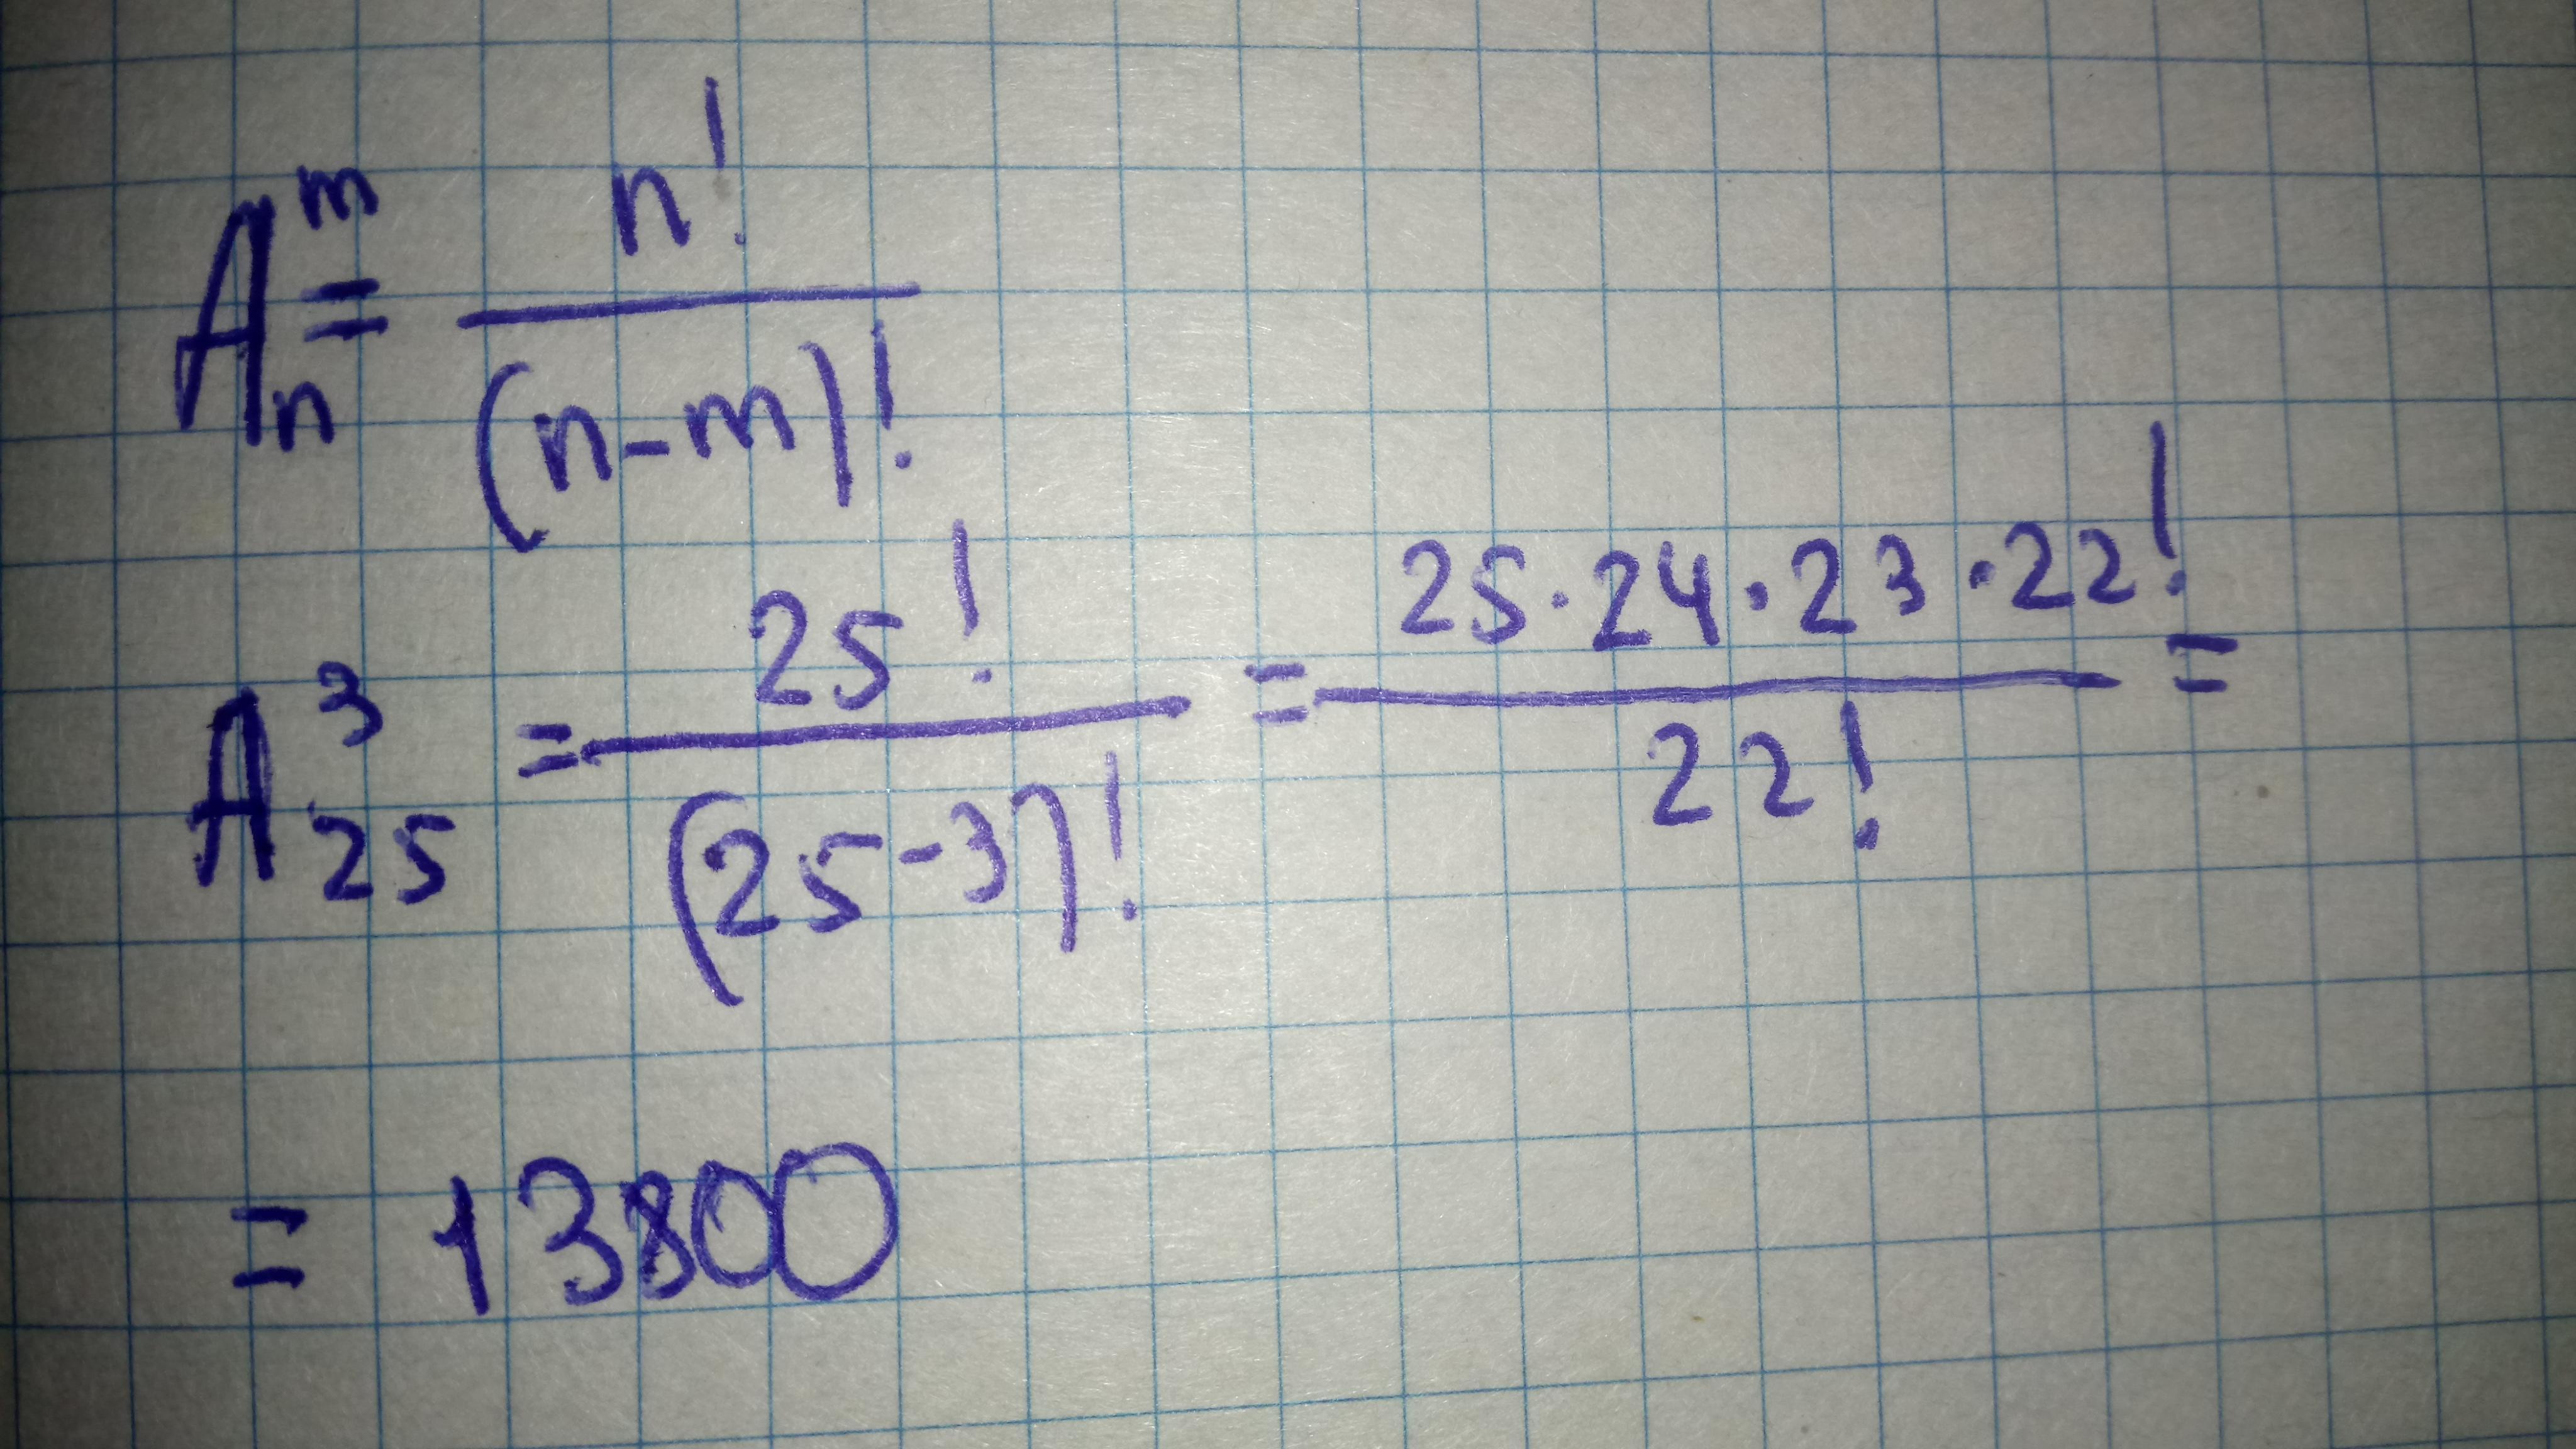 A_n^m = n! / (n-m)!
A_25^3 = 25! / (25-3)! = 25·24·23·22! / 22! =
= 13800